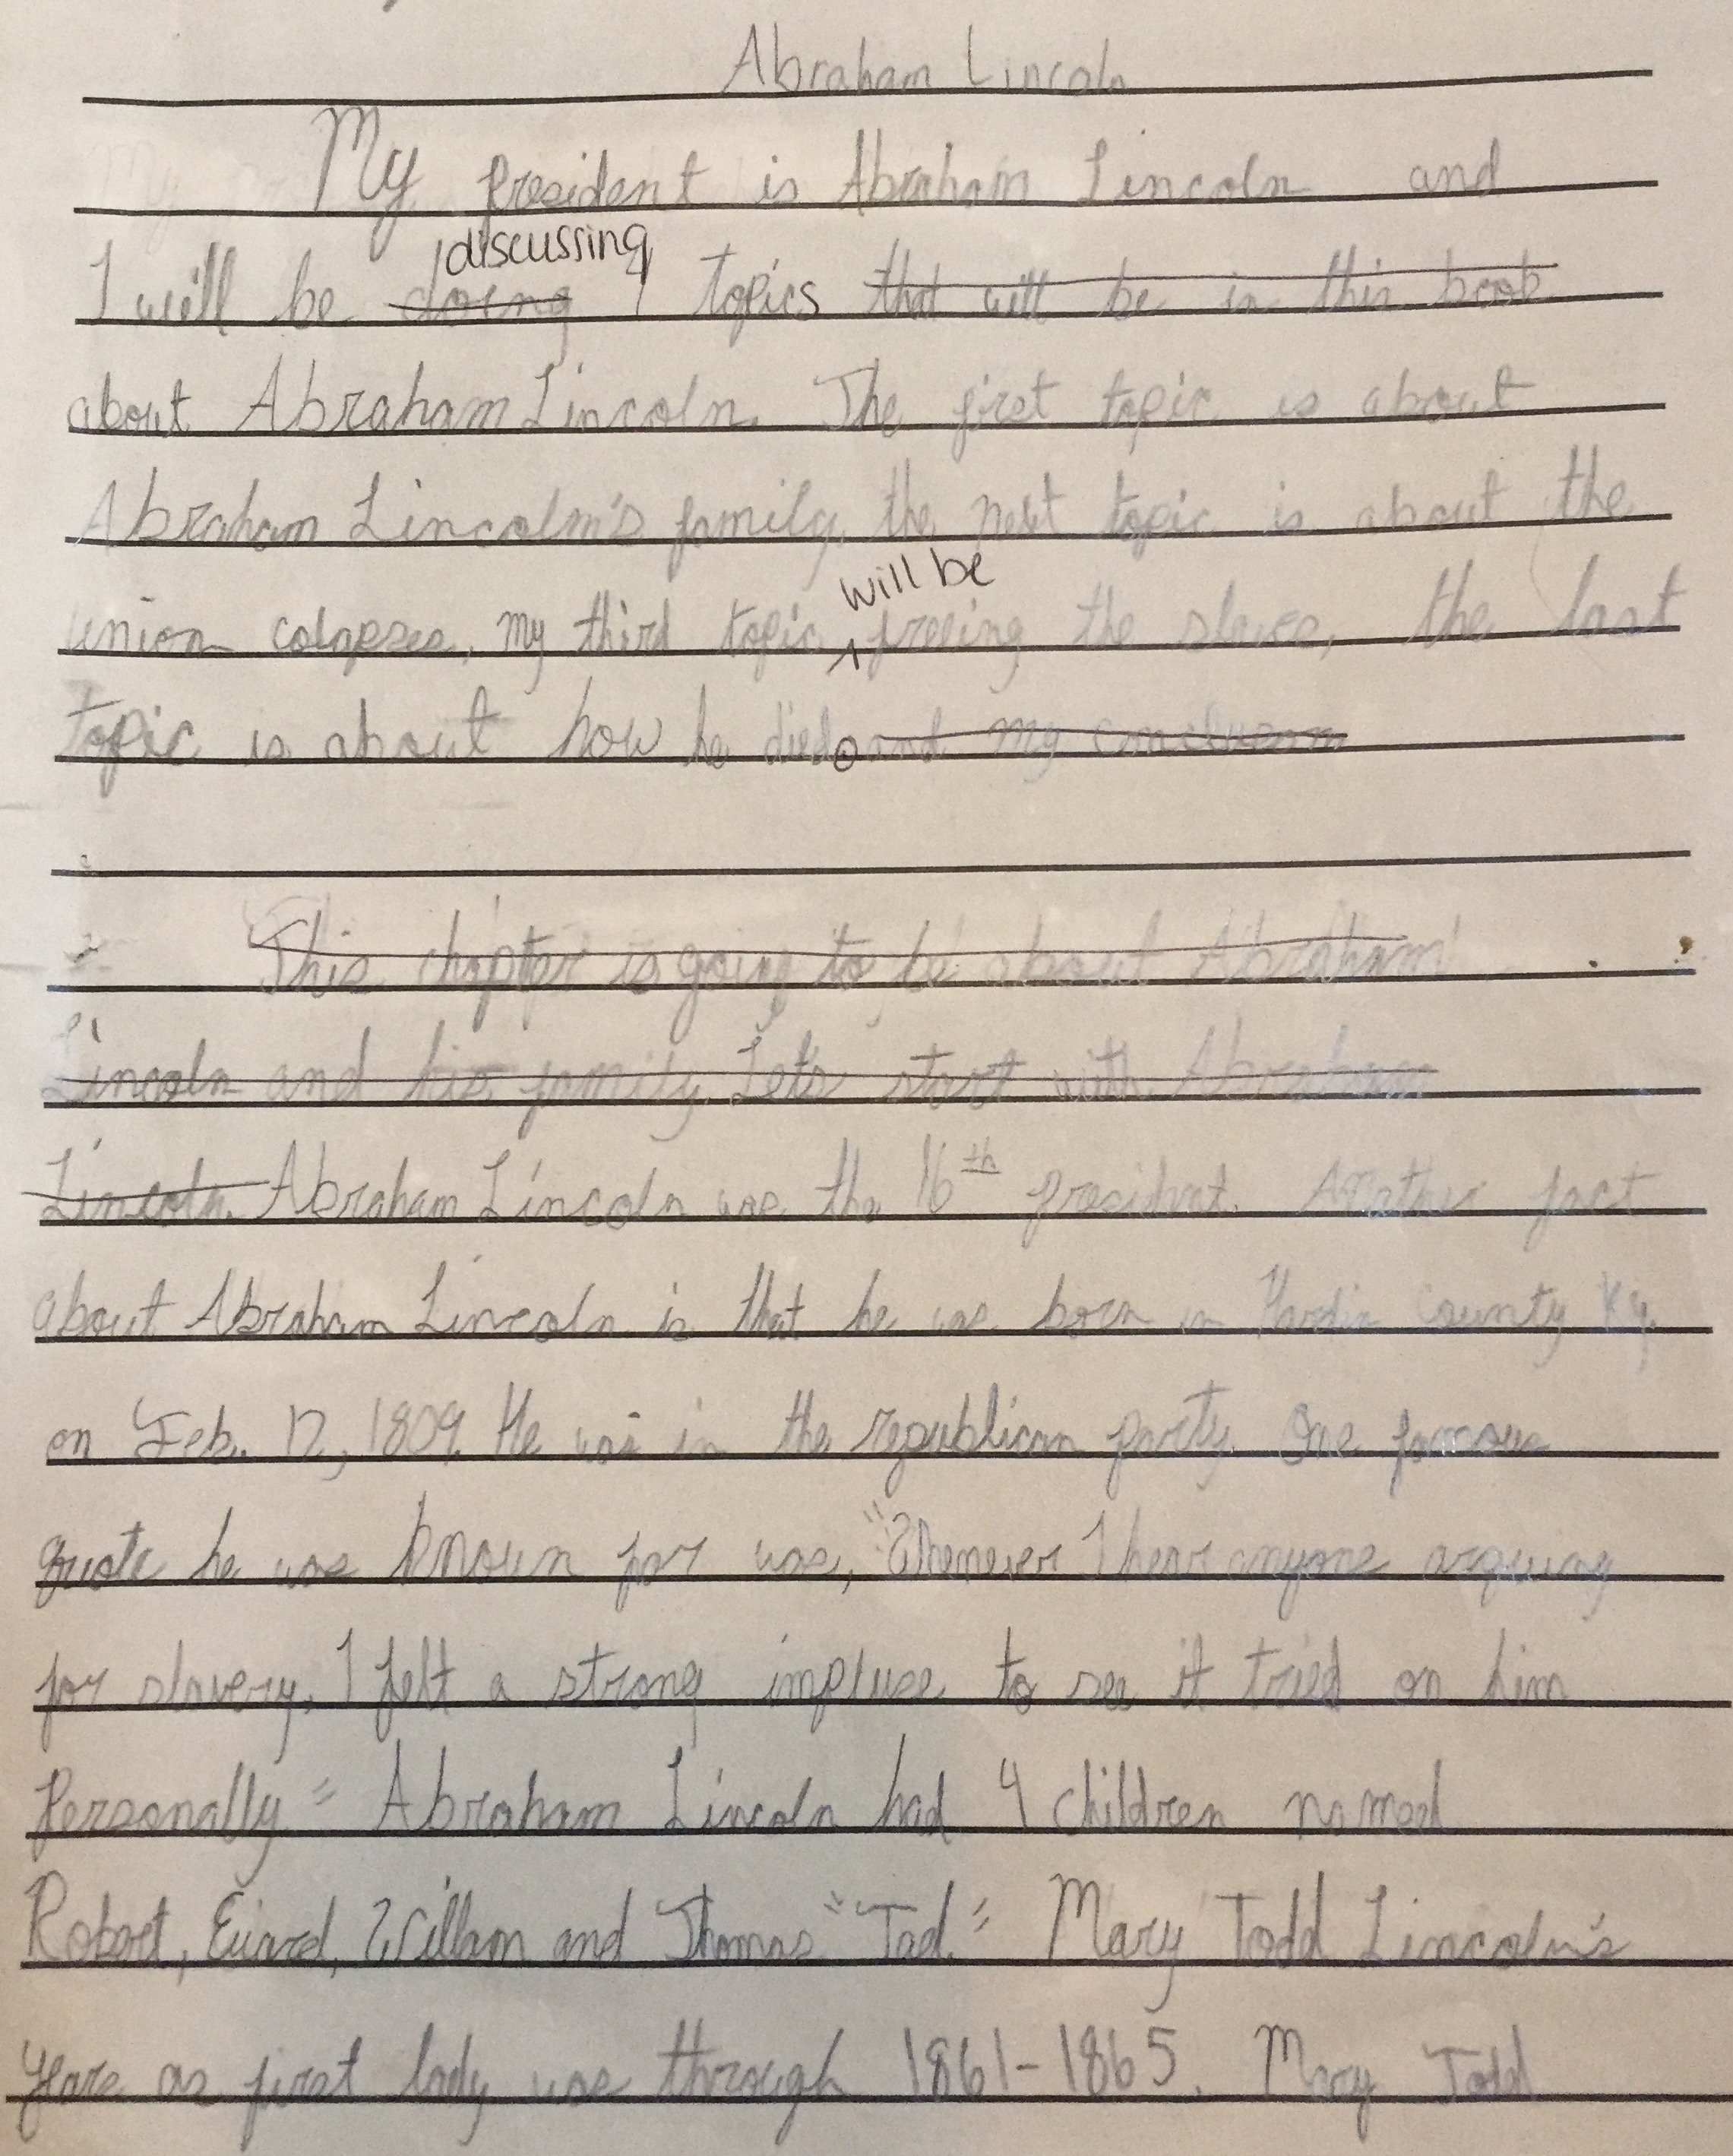 Abraham Lincoln
My president is Abraham Lincoln and
discussing
I will be doing 4 topics that will be in this book
about Abraham Lincoln. The first topic is about
Abraham Lincoln's family, the next topic is about the
will be
union colapses, my third topic freeing the slaves, the last
topic is about how he died. and my conclusion
This chapter is going to be about Abraham
Lincoln and his family. Let's start with Abraham
Lincoln. Abraham Lincoln was the 16th president. Another fact
about Abraham Lincoln is that he was born in Hardin County Ky,
on Feb. 12, 1809. He was in the republican party. One famous
quote he was known for was, "Whenever I hear anyone arguing
for slavery, I felt a strong impluse to see it tried on him
Personally" Abraham Lincoln had 4 children named
Robert, Eward, Willam and Thomas "Tad." Mary Todd Lincoln's
as first lady was through 1861-1865. Mary Todd